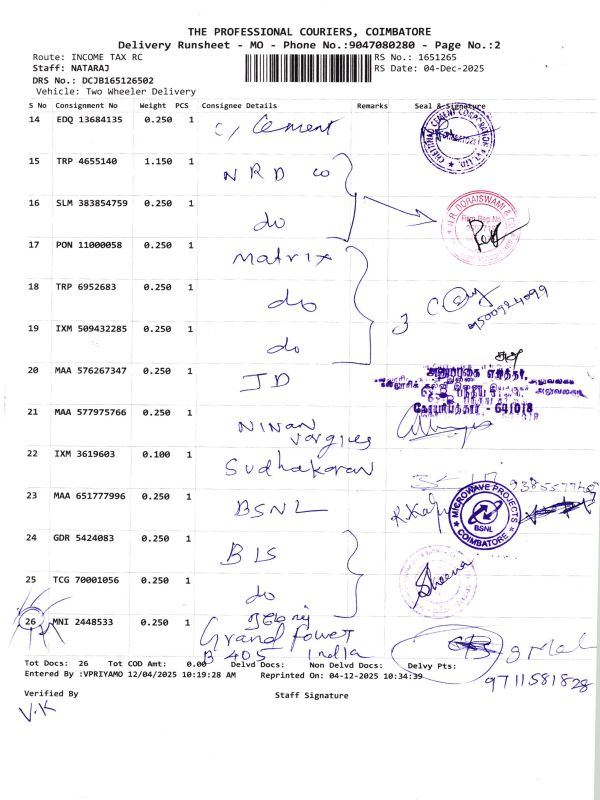 THE PROFESSIONAL COURIERS, COIMBATORE
Delivery Runsheet - MO - Phone No.:9047080280 - Page No.:2
Route: INCOME TAX RC
RS No.: 1651265
Staff: NATARAJ
RS Date: 04-Dec-2025
DRS No.: DCJB165126502
Vehicle: Two Wheeler Delivery
S No Consignment No Weight PCS Consignee Details Remarks Seal & Signature
14 EDQ 13684135 0.250 1 C/ Cement
15 TRP 4655140 1.150 1 NRD co
16 SLM 383854759 0.250 1 do
N.R. DORAISWAMI & CO
Firm Reg No
17 PON 11000058 0.250 1 Matrix
18 TRP 6952683 0.250 1 do
3
9500924099
19 IXM 509432285 0.250 1 do
20 MAA 576267347 0.250 1 JD
கோயமுத்தூர் - 641018
21 MAA 577975766 0.250 1 NINAN
Vargies
22 IXM 3619603 0.100 1 Sudhakaran
23 MAA 651777996 0.250 1 BSNL
MICROWAVE PROJECTS
BSNL
COIMBATORE
24 GDR 5424083 0.250 1 BIS
25 TCG 70001056 0.250 1 do
Sheena
26 MNI 2448533 0.250 1
Grand Tower
B 405 India
Tot Docs: 26 Tot COD Amt: 0.00 Delvd Docs: Non Delvd Docs: Delvy Pts:
Entered By :VPRIYAMO 12/04/2025 10:19:28 AM Reprinted On: 04-12-2025 10:34:39
9711581828
Verified By Staff Signature
V.K